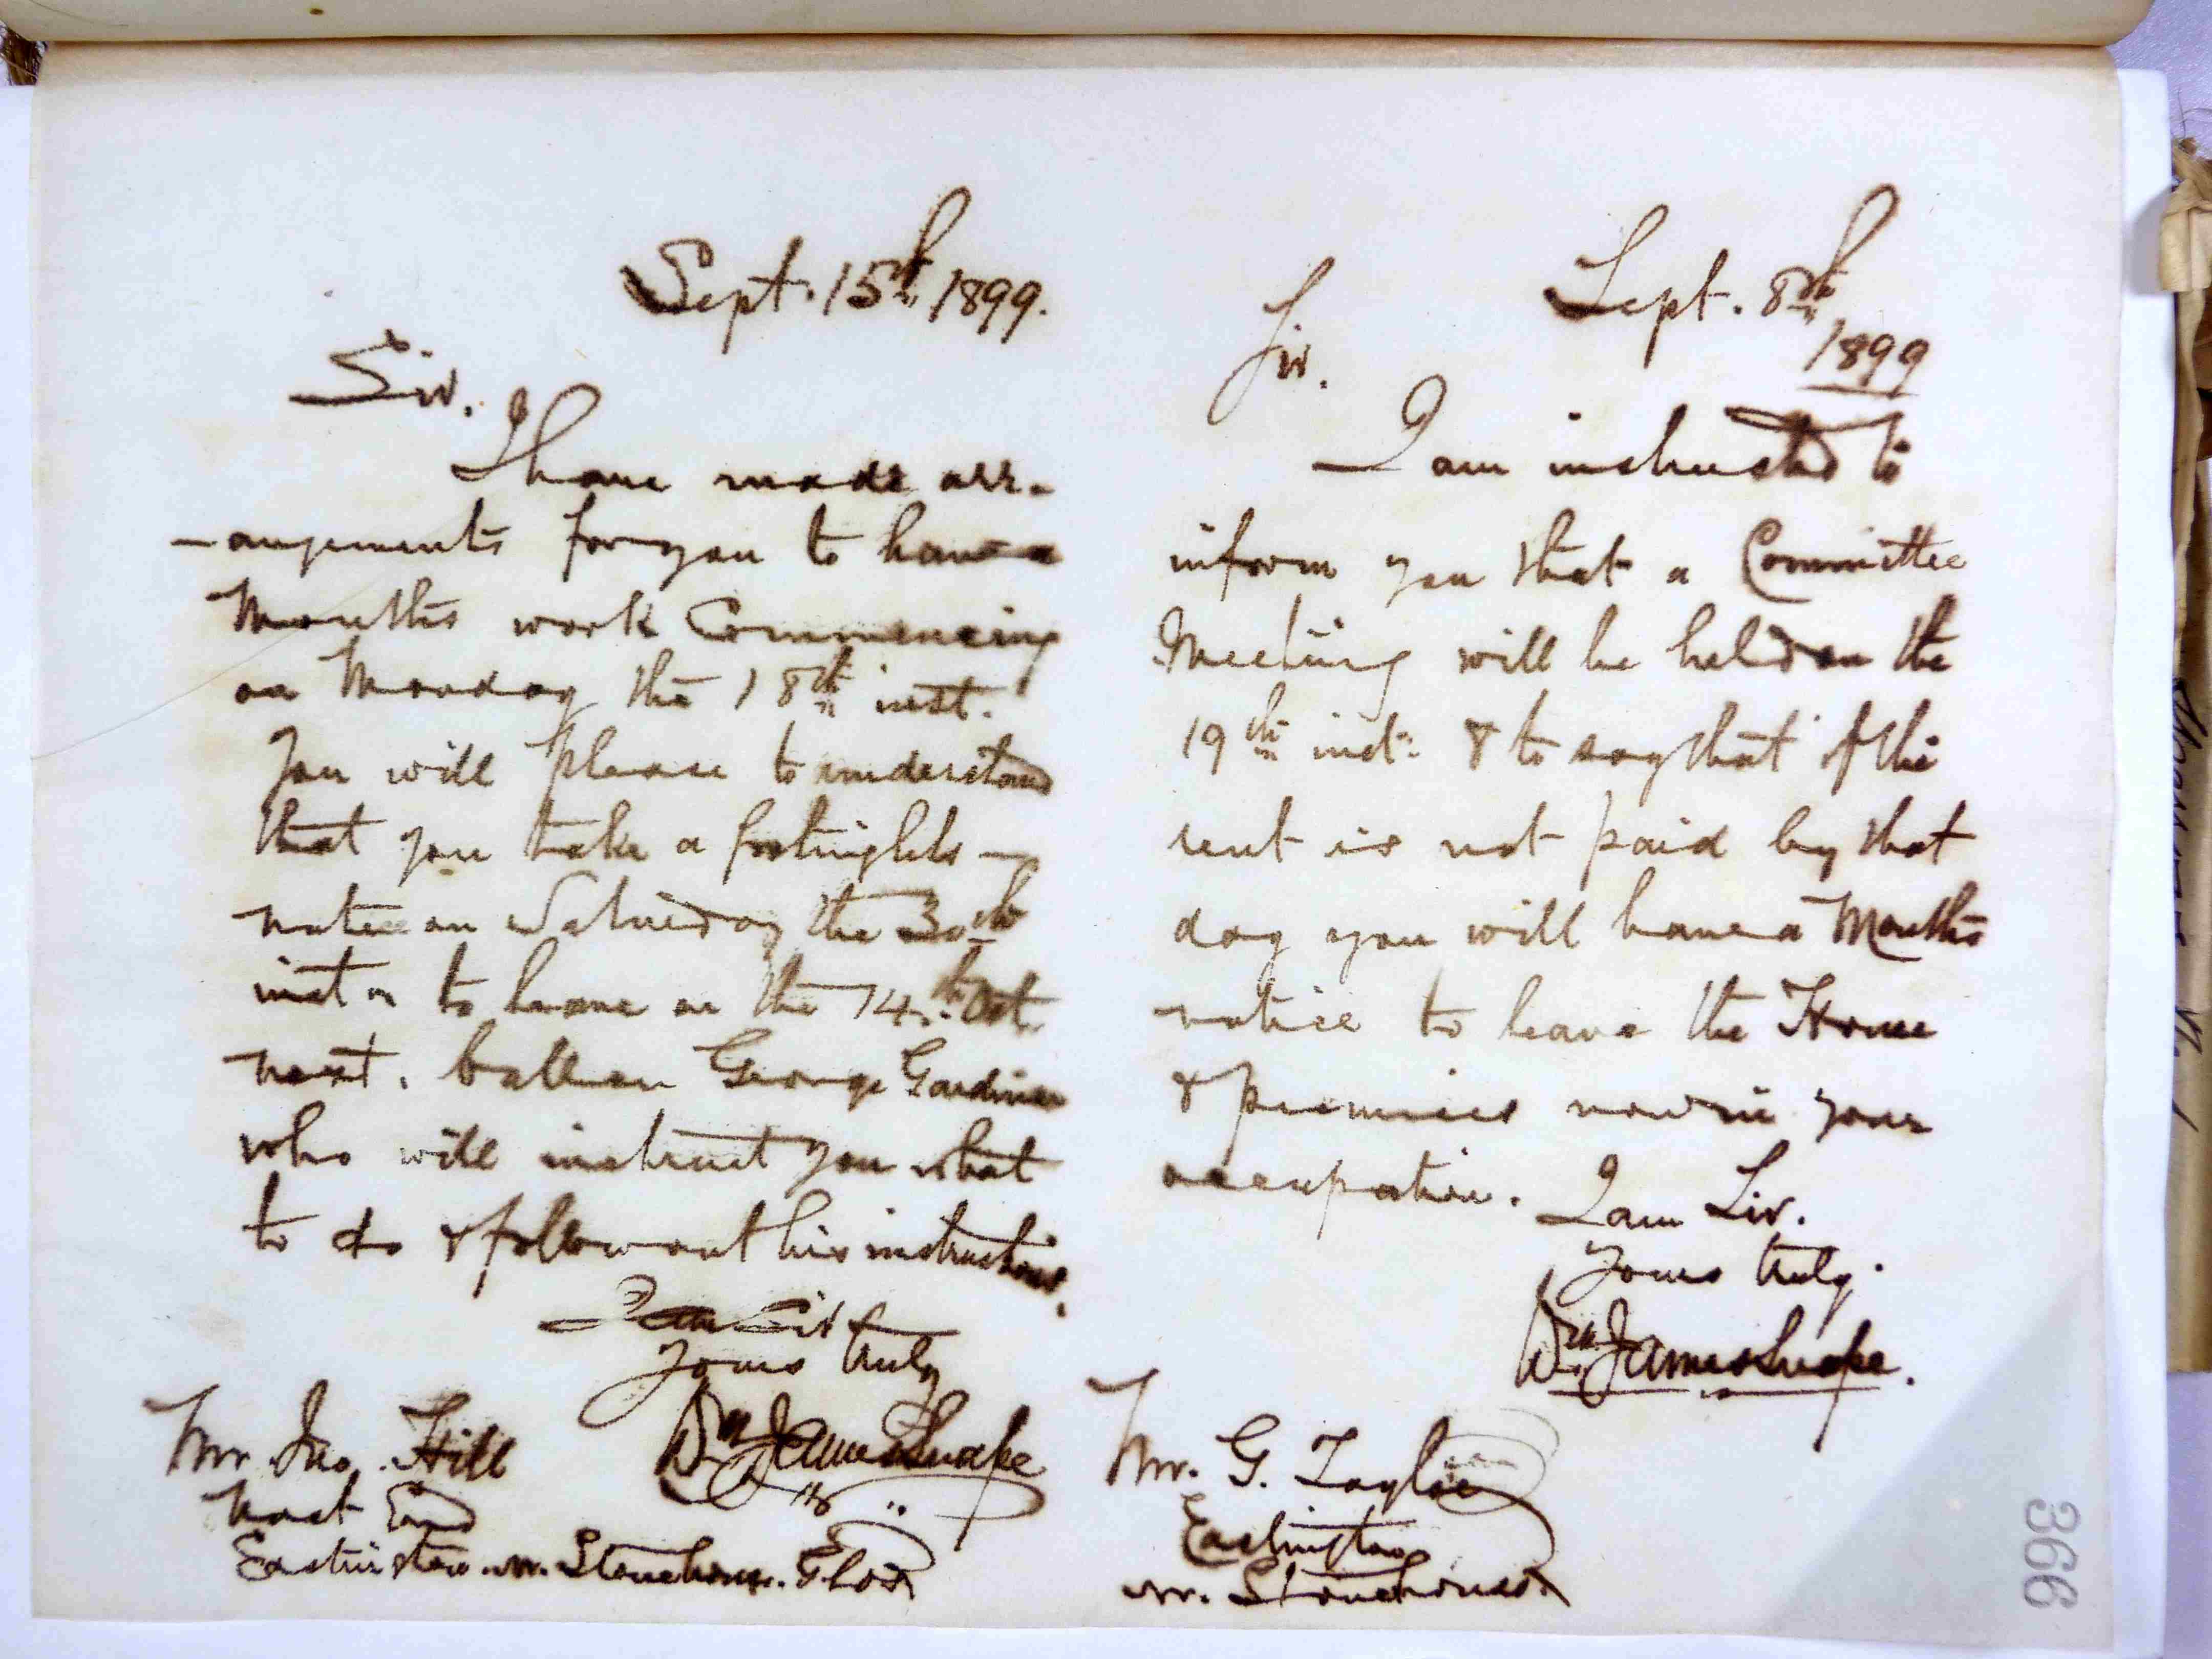 Sept. 15th 1899.
Sir.
I have made arr-
-angements for you to have a
Months work Commencing
on Monday the 18th inst.
You will please to understand
that you take a fortnights -
notice on Saturday the 30th
inst to leave on the 14th Oct.
next. Call on George Gardiner
who will instruct you what
to do & follow out his instructions.
I am Sir
Yours truly
Wm James Snape
Mr. Jno. Hill
End
Eastington nr. Stonehouse. Glos
Sept. 8th
1899
Sir.
I am instructed to
inform you that a Committee
Meeting will be held on the
19th inst: & to say that if the
rent is not paid by that
day you will have a Months
notice to leave the House
& premises now in your
occupation. I am Sir.
Yours truly.
Wm James Snape.
Mr. G. Taylor
Eastington
nr. Stonehouse.
366